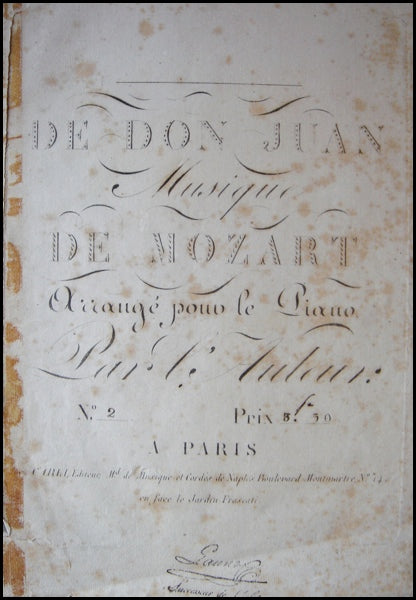 DE DON JUAN
Musique
DE MOZART
Arrangé pour le Piano
Par l'Auteur.
N.º 2 Prix 3.f 50
À PARIS
CARLI, Editeur M.d de Musique et Cordes de Naples Boulevard Montmartre N.º 14
en face le Jardin Frascati
Successeur de